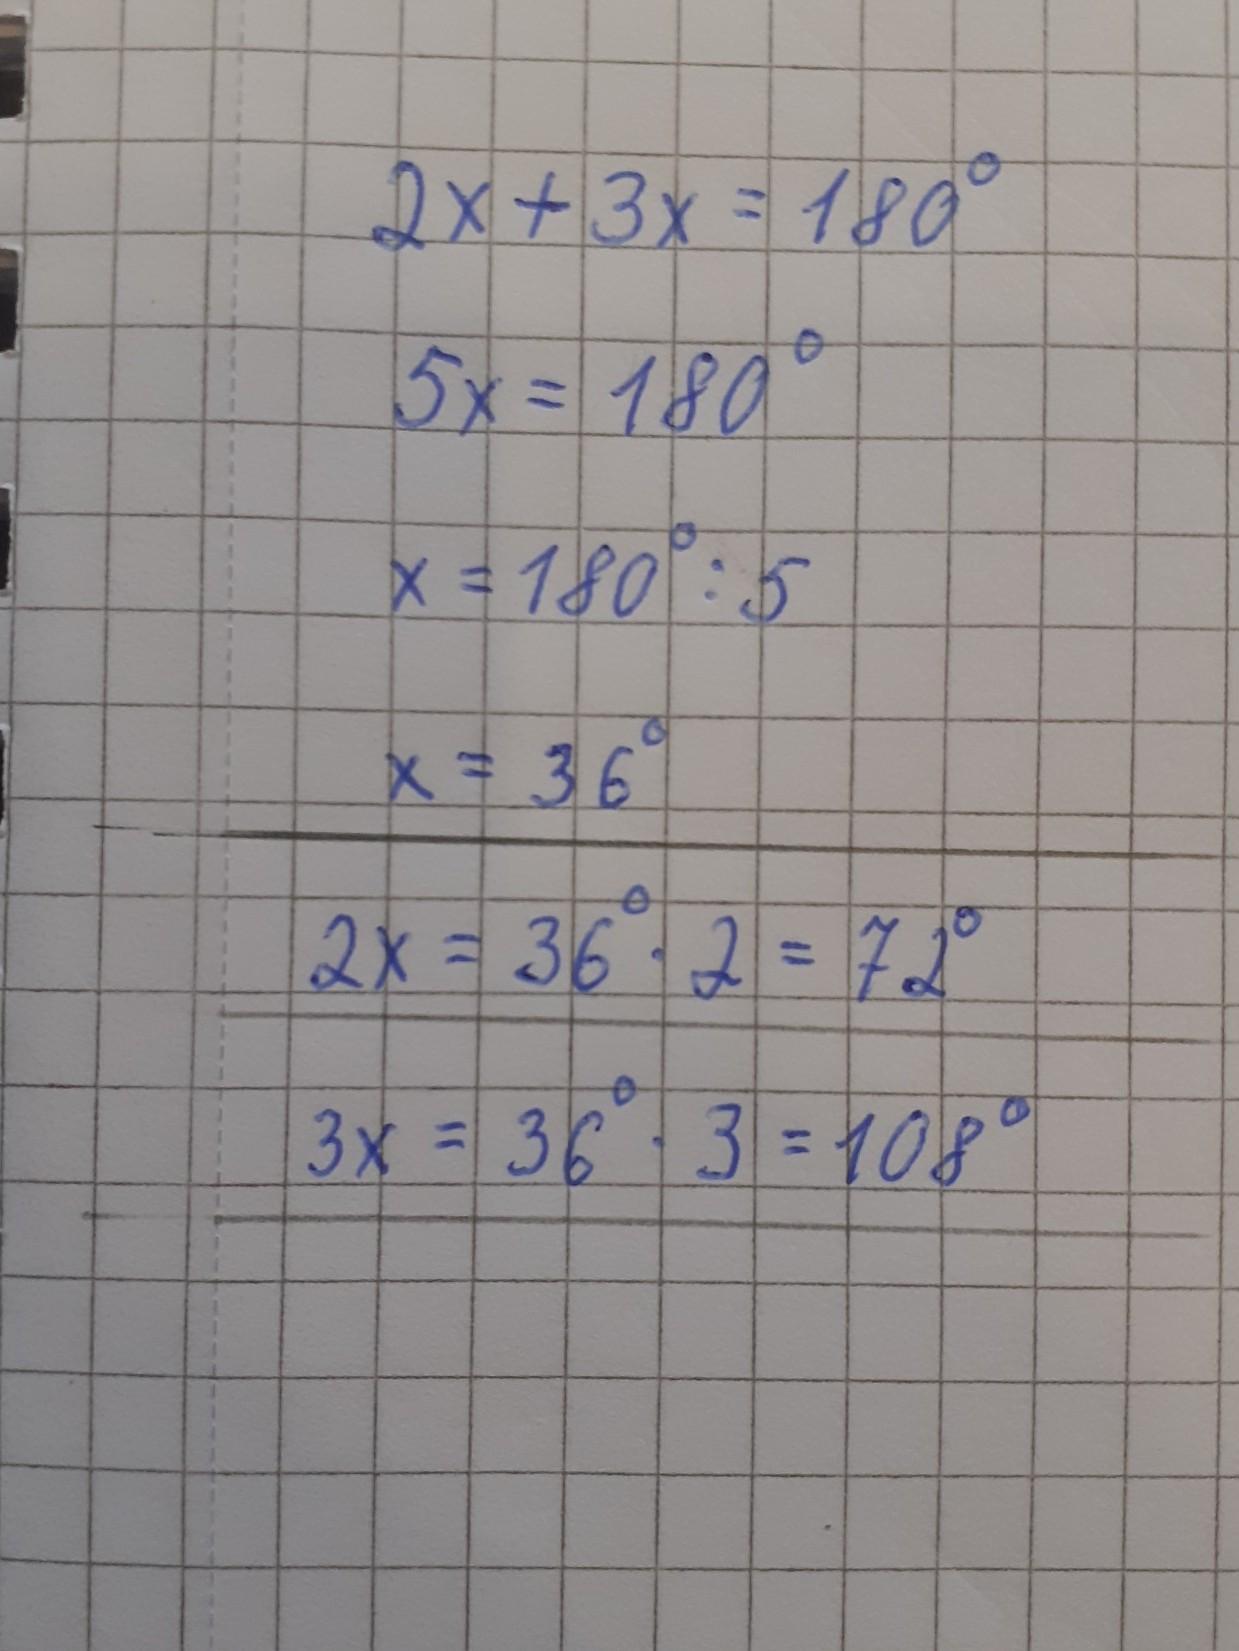 2x + 3x = 180°
5x = 180°
x = 180° : 5
x = 36°
2x = 36° · 2 = 72°
3x = 36° · 3 = 108°